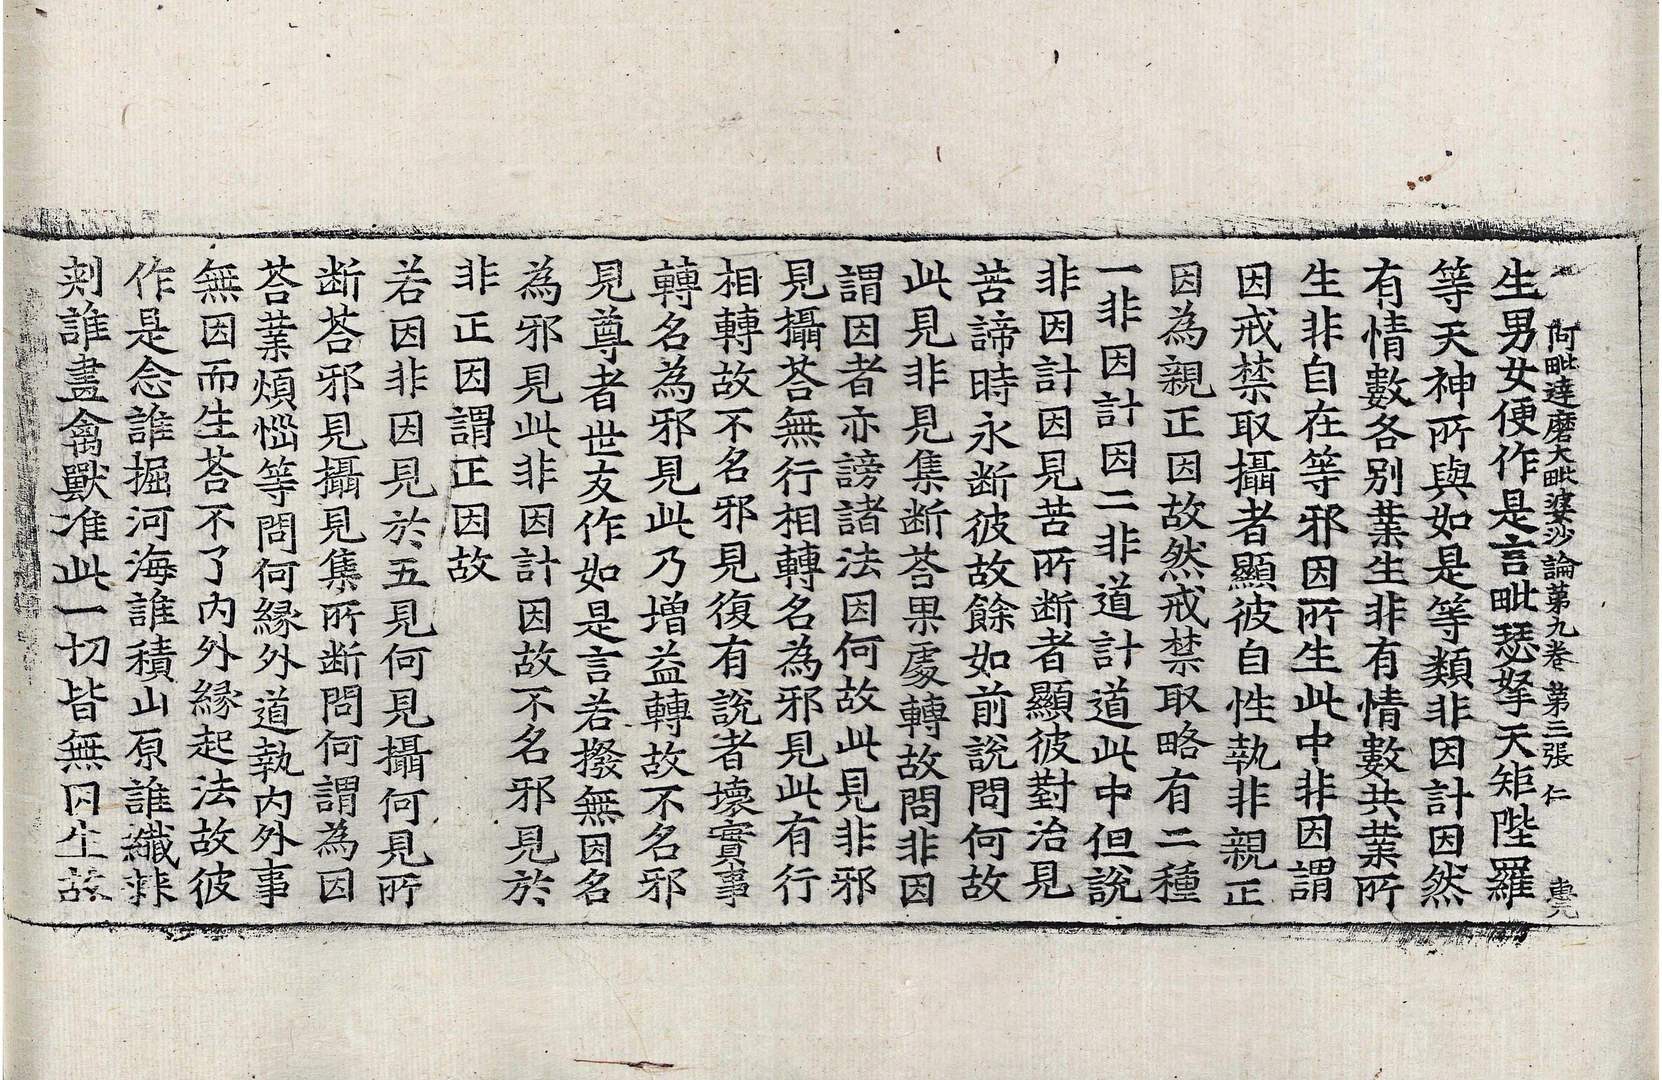 阿毗達磨大毗婆沙論第九卷 第三張 仁 惠元
生男女便作是言毗瑟拏天矩陛羅
等天神所與如是等類非因計因然
有情數各别業生非有情數共業所
生非自在等邪因所生此中非因謂
因戒禁取攝者顯彼自性執非親正
因為親正因故然戒禁取略有二種
一非因計因二非道計道此中但說
非因計因見苦所断者顯彼對治見
苦諦時永断彼故餘如前說問何故
此見非見集断荅果處轉故問非因
謂因者亦謗諸法因何故此見非邪
見攝荅無行相轉名為邪見此有行
相轉故不名邪見復有說者壞實事
轉名為邪見此乃增益轉故不名邪
見尊者世友作如是言若撥無因名
為邪見此非因計因故不名邪見於
非正因謂正因故
若因非因見於五見何見攝何見所
断荅邪見攝見集所断問何謂為因
荅業煩惱等問何緣外道執內外事
無因而生荅不了內外緣起法故彼
作是念誰掘河海誰積山原誰纖棘
刾誰畫禽獸准此一切皆無因生故